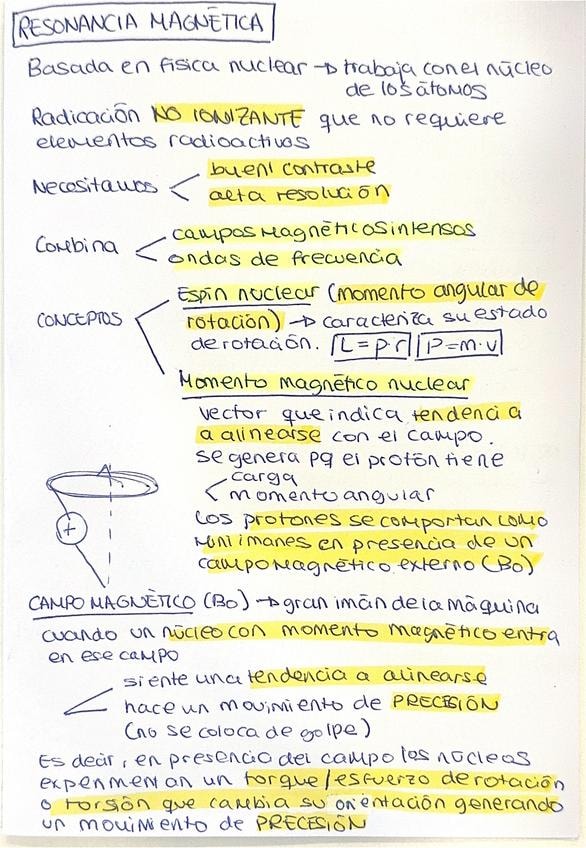 RESONANCIA MAGNÉTICA
Basada en física nuclear → trabaja con el núcleo
de los átomos
Radicación NO IONIZANTE que no requiere
elementos radioactivos
Necesitamos < buenl contraste
alta resolución
Combina < campos magnéticos intensos
ondas de frecuencia
CONCEPTOS
Espín nuclear (momento angular de
rotación) → caracteriza su estado
de rotación. L = p·r P = m·v
Momento magnético nuclear
vector que indica tendencia
a alinearse con el campo.
se genera pq el protón tiene
< carga
momento angular
Los protones se comportan como
mini imanes en presencia de un
campo magnético externo (B0)
+
CAMPO MAGNÉTICO (B0) → gran imán de la máquina
cuando un núcleo con momento magnético entra
en ese campo
< siente una tendencia a alinearse
hace un movimiento de PRECESIÓN
(no se coloca de golpe)
Es decir, en presencia del campo los núcleos
experimentan un torque/esfuerzo de rotación
o torsión que cambia su orientación generando
un movimiento de PRECESIÓN